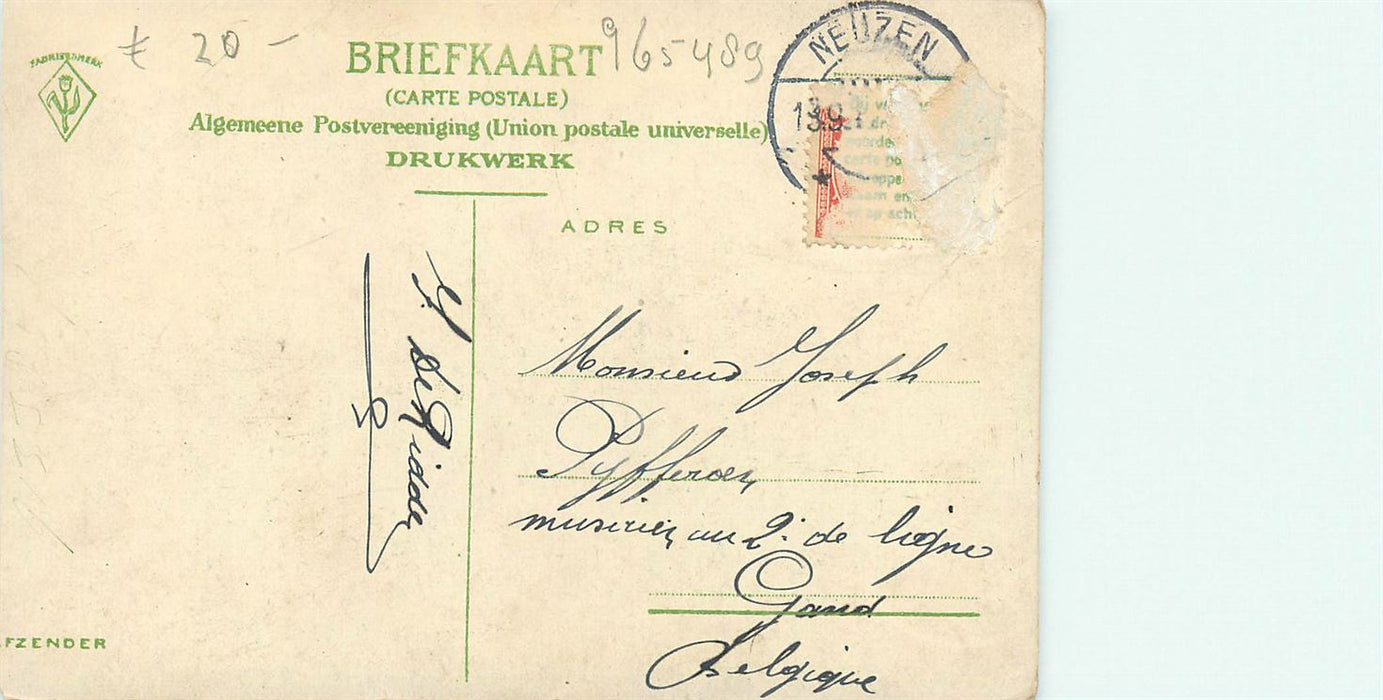 € 20 –
965489
FABRIEKSMERK
BRIEFKAART
(CARTE POSTALE)
Algemeene Postvereeniging (Union postale universelle)
DRUKWERK
NEUZEN
13.9.1
carte po
en
op acht
ADRES
De Ridder
Monsieur Joseph
Pyfferoen
musicien au 2e de ligne
Gand
Belgique
FZENDER